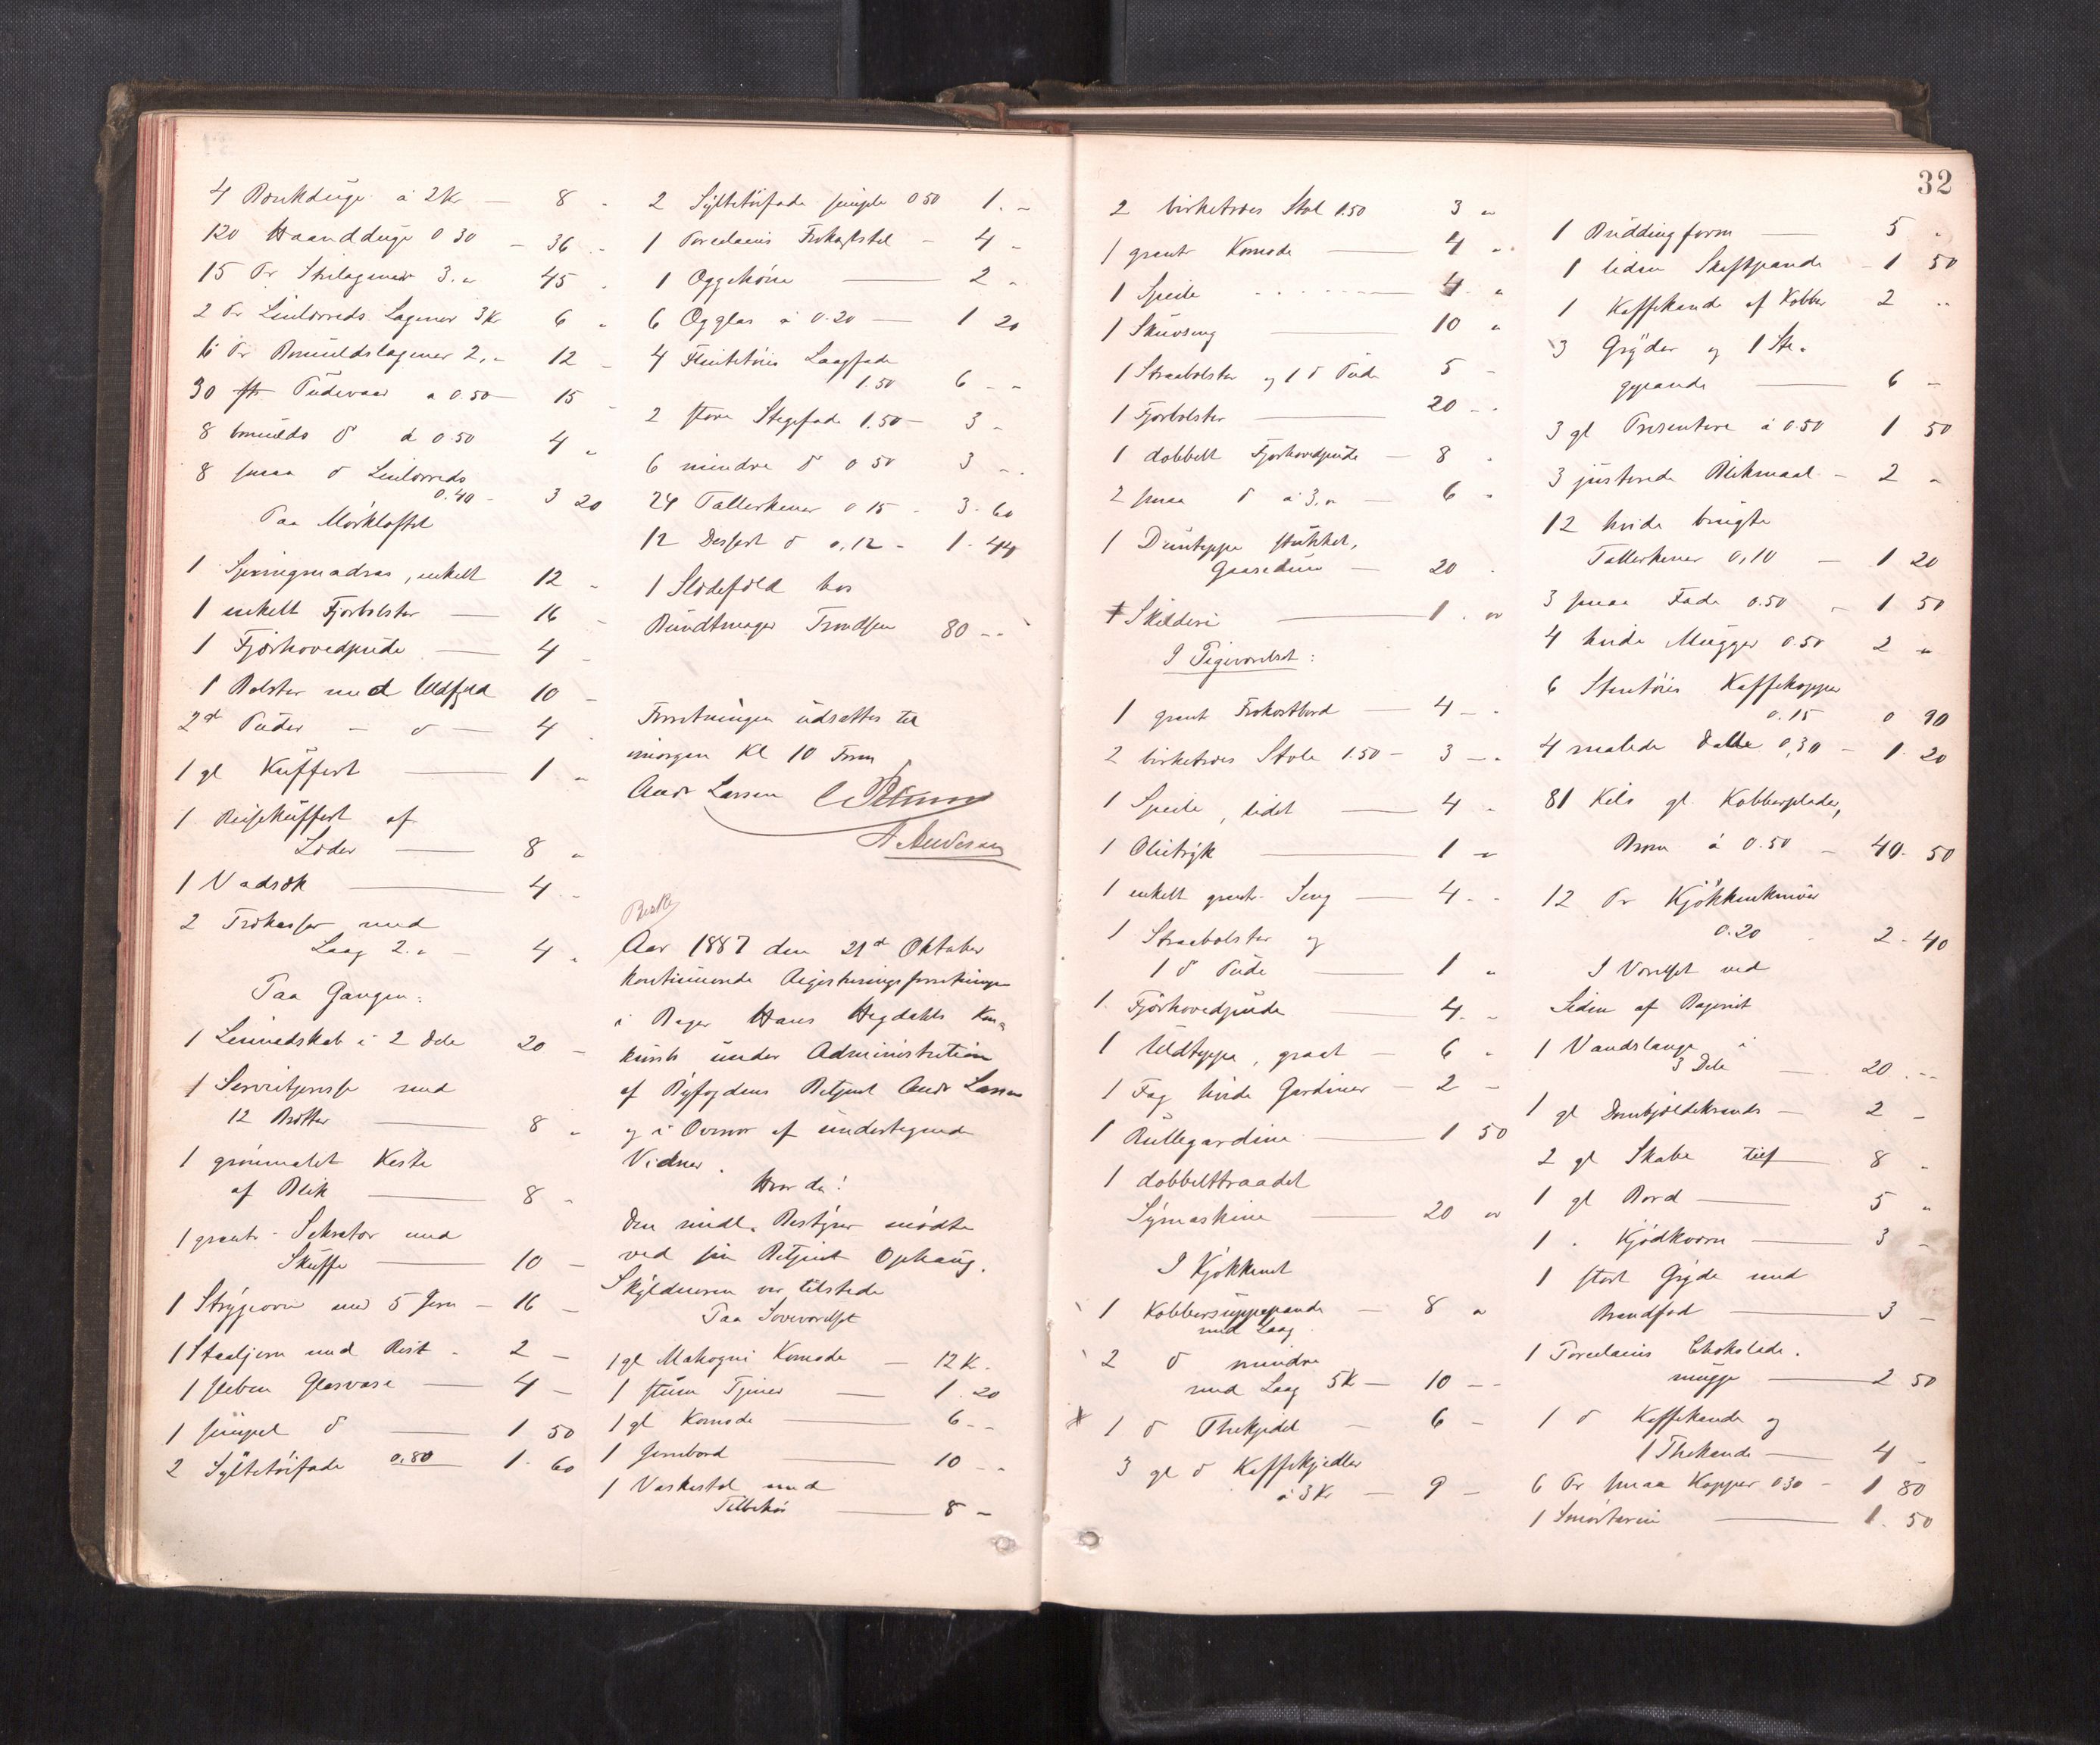 4 Bordduge à 2 Kr — 8 "
120 Haandduge 0 30 — 36 "
15 Pr Strilagener 3." 45 "
2 Pr Linlærreds Lagener 3 Kr 6 "
6 Pr Bomuldslagener 2," 12 "
30 st Pudevaar a 0.50 — 15 "
8 bomulds do à 0.50 4 "
8 smaa do Linlærreds
0.40 - 3 20
Paa Mørkloftet
1 Springmadras, enkelt 12 -
1 enkelt Fjærbolster — 16 -
1 Fjærhovedpude — 4 -
1 Bolster med Uldfyld 10 -
2 st Puder - do — 4 "
1 gl Kuffert — 1 "
1 Reisekuffert af
Læder — 8 "
1 Vadsæk — 4 -
2 Trækasser med
Laag 2." — 4 "
Paa Gangen:
1 Linnedskab i 2 Dele 20 -
1 Servietpresse med
12 Bretter — 8 "
1 grønmalet Kiste
af Blik — 8 "
1 grant. Sekretær med
Skuffe — 10 -
1 Strygeovn med 5 Jern — 16 -
1 Staaljern med Rist - 2 -
1 sleben Glasvase — 4 -
1 simpel do — 1 50
2 Syltetøifade 0.80 1. 60
2 Syltetøifade simple 0 50 1. -
1 Porcelæns Frokoststel - 4 -
1 Æggehøne — 2 "
6 Ægglas à 0.20 — 1 20
4 Flintetøis Laagfade
1.50 6 - -
2 store Stegefade 1.50 - 3 -
6 mindre do 0 50 3 -
24 Tallerkener 0 15 - 3. 60
12 Dessert do 0,12 - 1. 44
1 Slædefæld hos
Bundtmager Trondsen 80 - -
Forretningen udsattes til
imorgen Kl 10 Form
Andr Larsen
A Andersen
Aar 1887 den 21de Oktober
kontinuerede Registreringsforretningen
i Bager Hans Hegdahls Kon-
kursbo under Administration
af Byfogdens Betjent Andr Larsen
og i Overvær af undertegnede
Vidner.
Hvorda:
Den midl. Bestyrer mødte
ved sin Betjent Ophaug.
Skyldneren var tilstede
Paa Soveværelset
1 gl Mahogni Komode — 12 K.
1 Tjener — 1. 20
1 gl Komode — 6 - -
1 Jernbord — 10 - -
1 Vaskestol med
Tilbehør — 8 -
32
2 birketræes Stol 1.50 3 "
1 grant Komode — 4 "
1 Speile - - - - - 4. "
1 Skuvseng — 10 "
1 Straabolster og 1 do Pude 5 -
1 Fjærbolster — 20 - -
1 dobbelt Fjærhovedpude — 8 "
2 smaa do à 3." — 6 "
1 Dunteppe stukket,
Gaasedun — 20 -
1 Skilderi — 1. "
I Pigeværelset:
1 grant Frokostbord — 4 - -
2 birketræes Stole 1.50 - 3 - -
1 Speile, lidet — 4 -
1 Olietryk — 1 "
1 enkelt grant. Seng — 4 - -
1 Straabolster og
1 do Pude — 1 "
1. Fjærhovedpude — 4. -
1 Uldteppe, graat — 6 "
1 Fag hvide Gardiner — 2 -
1 Rullegardin — 1 50
1 dobbelttraadet
Symaskine — 20 "
I Kjøkkenet
1 Kobbersuppepande — 8 "
med Laag
2 do mindre
med Laag 5 K — 10 - -
1 do Thekjedel — 6 -
3 gl do Kaffekjedler
à 3 Kr — 9 -
1 Buddingform — 5 "
1 liden Skaftpande — 1 50
1 Kaffekande af Kobber 2 "
3 Gryder og 1 Ste-
gepande — 6 -
3 gl Presentere à 0.50 1 50
3 justerede Blikmaal — 2 "
12 hvide brugte
Tallerkener 0,10 — 1 20
3 smaa Fade 0.50 - 1 50
4 hvide Mugger 0.50 2 "
6 Stentøies Kaffekopper
0.15 0 90
4 malede Dalle 0,30 - 1. 20
81 Kilo gl. Kobberplader,
Brom à 0.50 - 40. 50
12 Pr Kjøkkenkniver
0.20 - 2. 40
I Værelset ved
Siden af Bageriet
1 Vandslange i
3 Dele — 20. - -
1 gl Dombjældekrands — 2 -
2 gl Skabe — 8 "
1 gl Bord — 5 "
1 " Kjødkværn — 3 -
1 stort Gryde med
Brandfad — 3 -
1 Porcelæns Chokolade-
mugge — 2 50
1 do Kaffekande og
1 Thekande — 4 -
6 Pr smaa Kopper 0 30 — 1 80
1 Smørterin — 1. 50